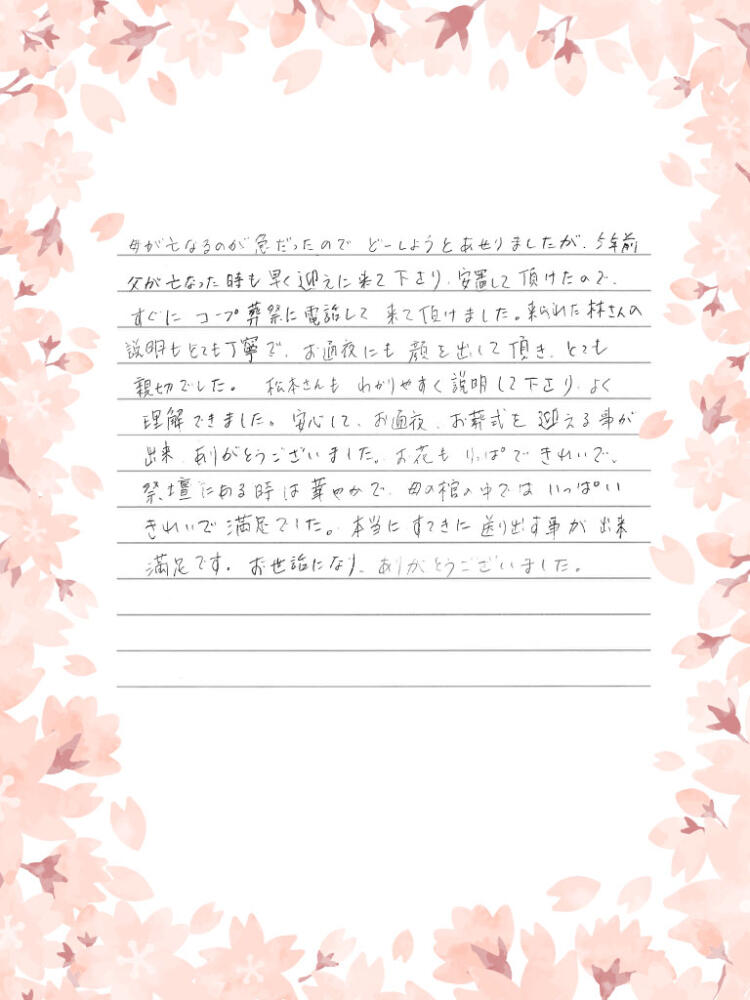 母が亡なるのが急だったので どーしようとあせりましたが、5年前
父が亡なった時も早く迎えに来て下さり、安置して頂けたので、
すぐに コープ葬祭に電話して 来て頂けました。来られた林さんの
説明もとても丁寧で、お通夜にも 顔を出して頂き、とても
親切でした。 松本さんも わかりやすく説明して下さり、よく
理解できました。安心して、お通夜、お葬式を 迎える事が
出来、ありがとうございました。お花も りっぱで きれいで、
祭壇にある時は華やかで、母の棺の中では いっぱい
きれいで満足でした。本当に すてきに 送り出す事が 出来
満足です。お世話になり、ありがとうございました。